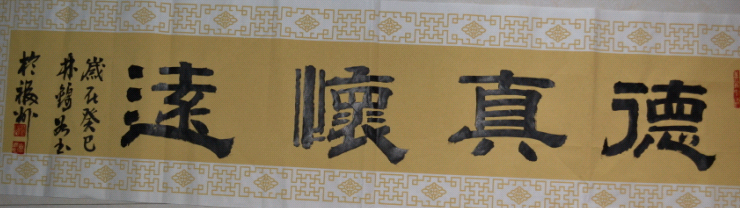 德真懷遠
歲在癸巳
林書
於福州